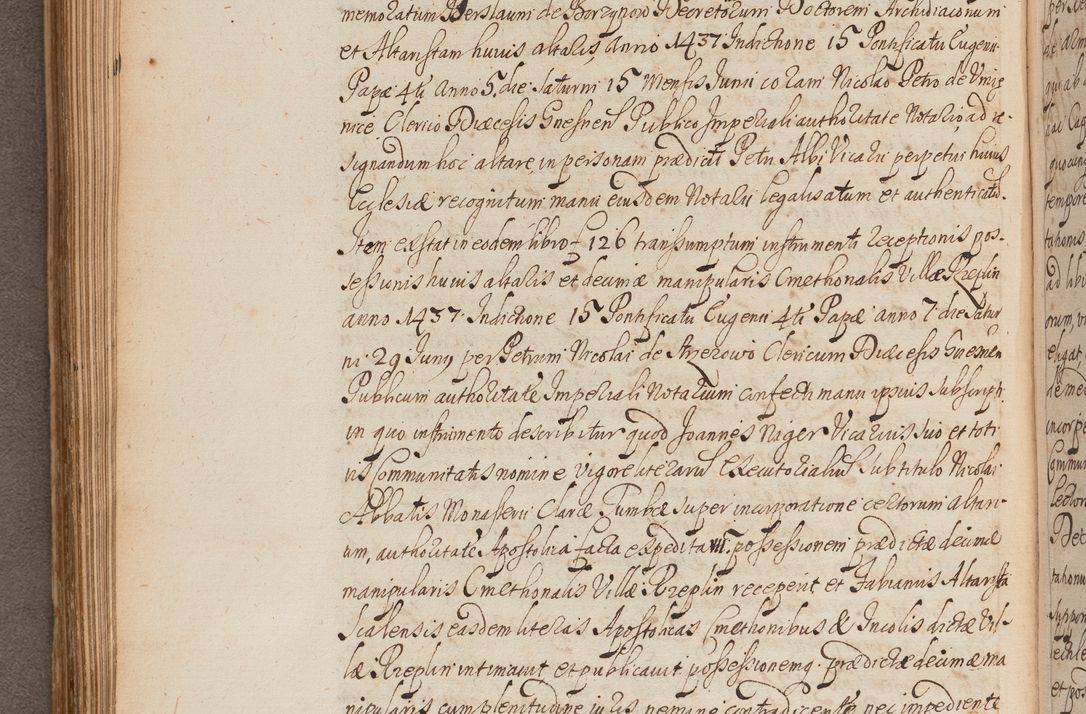 memoratum Derslaum de Borzynow Decretorum Doctorem Archidiaconum
et Altaristam huius altaris, anno 1437 Indictione 15 Pontificatu Eugenii
Papæ 4ti anno 5. die Saturni 15 Mensis Junii coram Nicolao Petro de
nice Clerico Diæcesis Gnesnen Publico Imperiali authoritate Notario, ad re-
signandum hoc altare, in personam prædicti Petri Albi Vicarii perpetui huius
Ecclesiæ recognitum manu eiusdem Notarii legalisatum et authenticatū.
Item exstat in eodem libro f 126 transumptum instrumenti receptionis pos-
sessionis huius altaris et decimæ manipularis Cmethonalis Villæ Rzeplin
anno 1437. Indictione 15 Pontificatu Eugenii 4ti Papæ anno 7 die Satur
ni 29 Junij per Petrum Nicolai de Clericum Diæcesis Gnesnen
Publicum authoritate Imperiali Notarium confecti manu ipsius subscripti
in quo instrumento describitur quod Joannes Niger Vicarius suo et toti
us Communitatis nomine vigore literarum Executorialium sub titulo Nicolai
Abbatis Monasterii Claræ Tumbæ super incorporatione certorum altari-
um, authoritate Apostolica facta expedita possessionem prædictæ decimæ
manipularis Cmethonalis Villæ Rzeplin receperit et Fabianus Altarista
Scalensis easdem literas Apostolicas Cmethonibus & Incolis dictæ Vil-
læ Rzeplin intimavit et publicavit possessionemq. prædictæ decimæ ma
nipularis cum plenitudine iuris nemine contradicente nec impediente